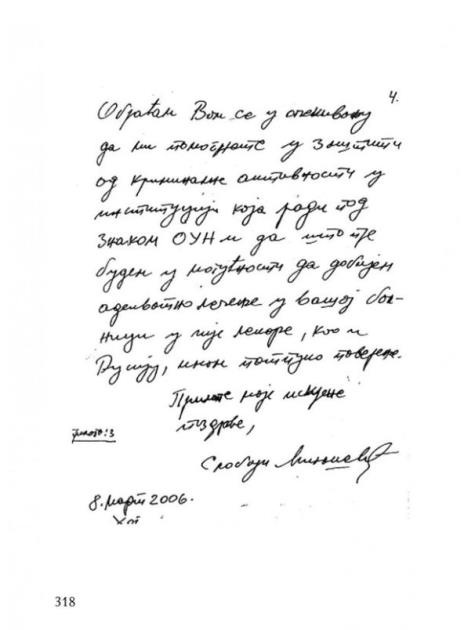 4.
Обраћам Вам се у очекивању
да ми помогнете у заштити
од криминалне активности у
институцији која ради под
знаком ОУН и да што пре
будем у могућности да добијем
адекватно лечење у вашој бол-
ници у чије лекаре, као и
Русију, имам потпуно поверење.
Примите моје искрене
поздраве,
Слободан Милошевић
8. март 2006.
318